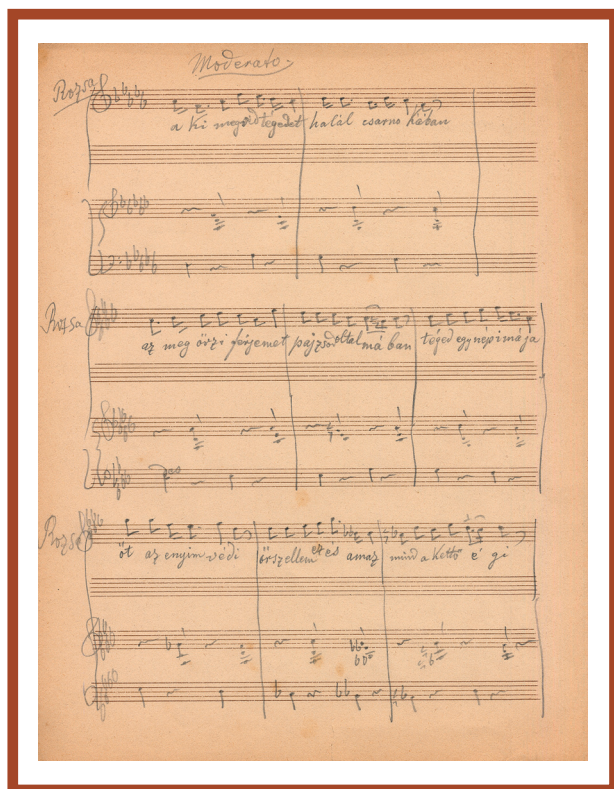 Moderato
Rozsa
a ki megold tégedet halál csarno kában
Rozsa
az meg őrzi férjemet pajzsod oltalmá ban téged egy nép imája
Rozsa
őt az enyim védi őrszellem ez és amaz mind a Kettő é gi